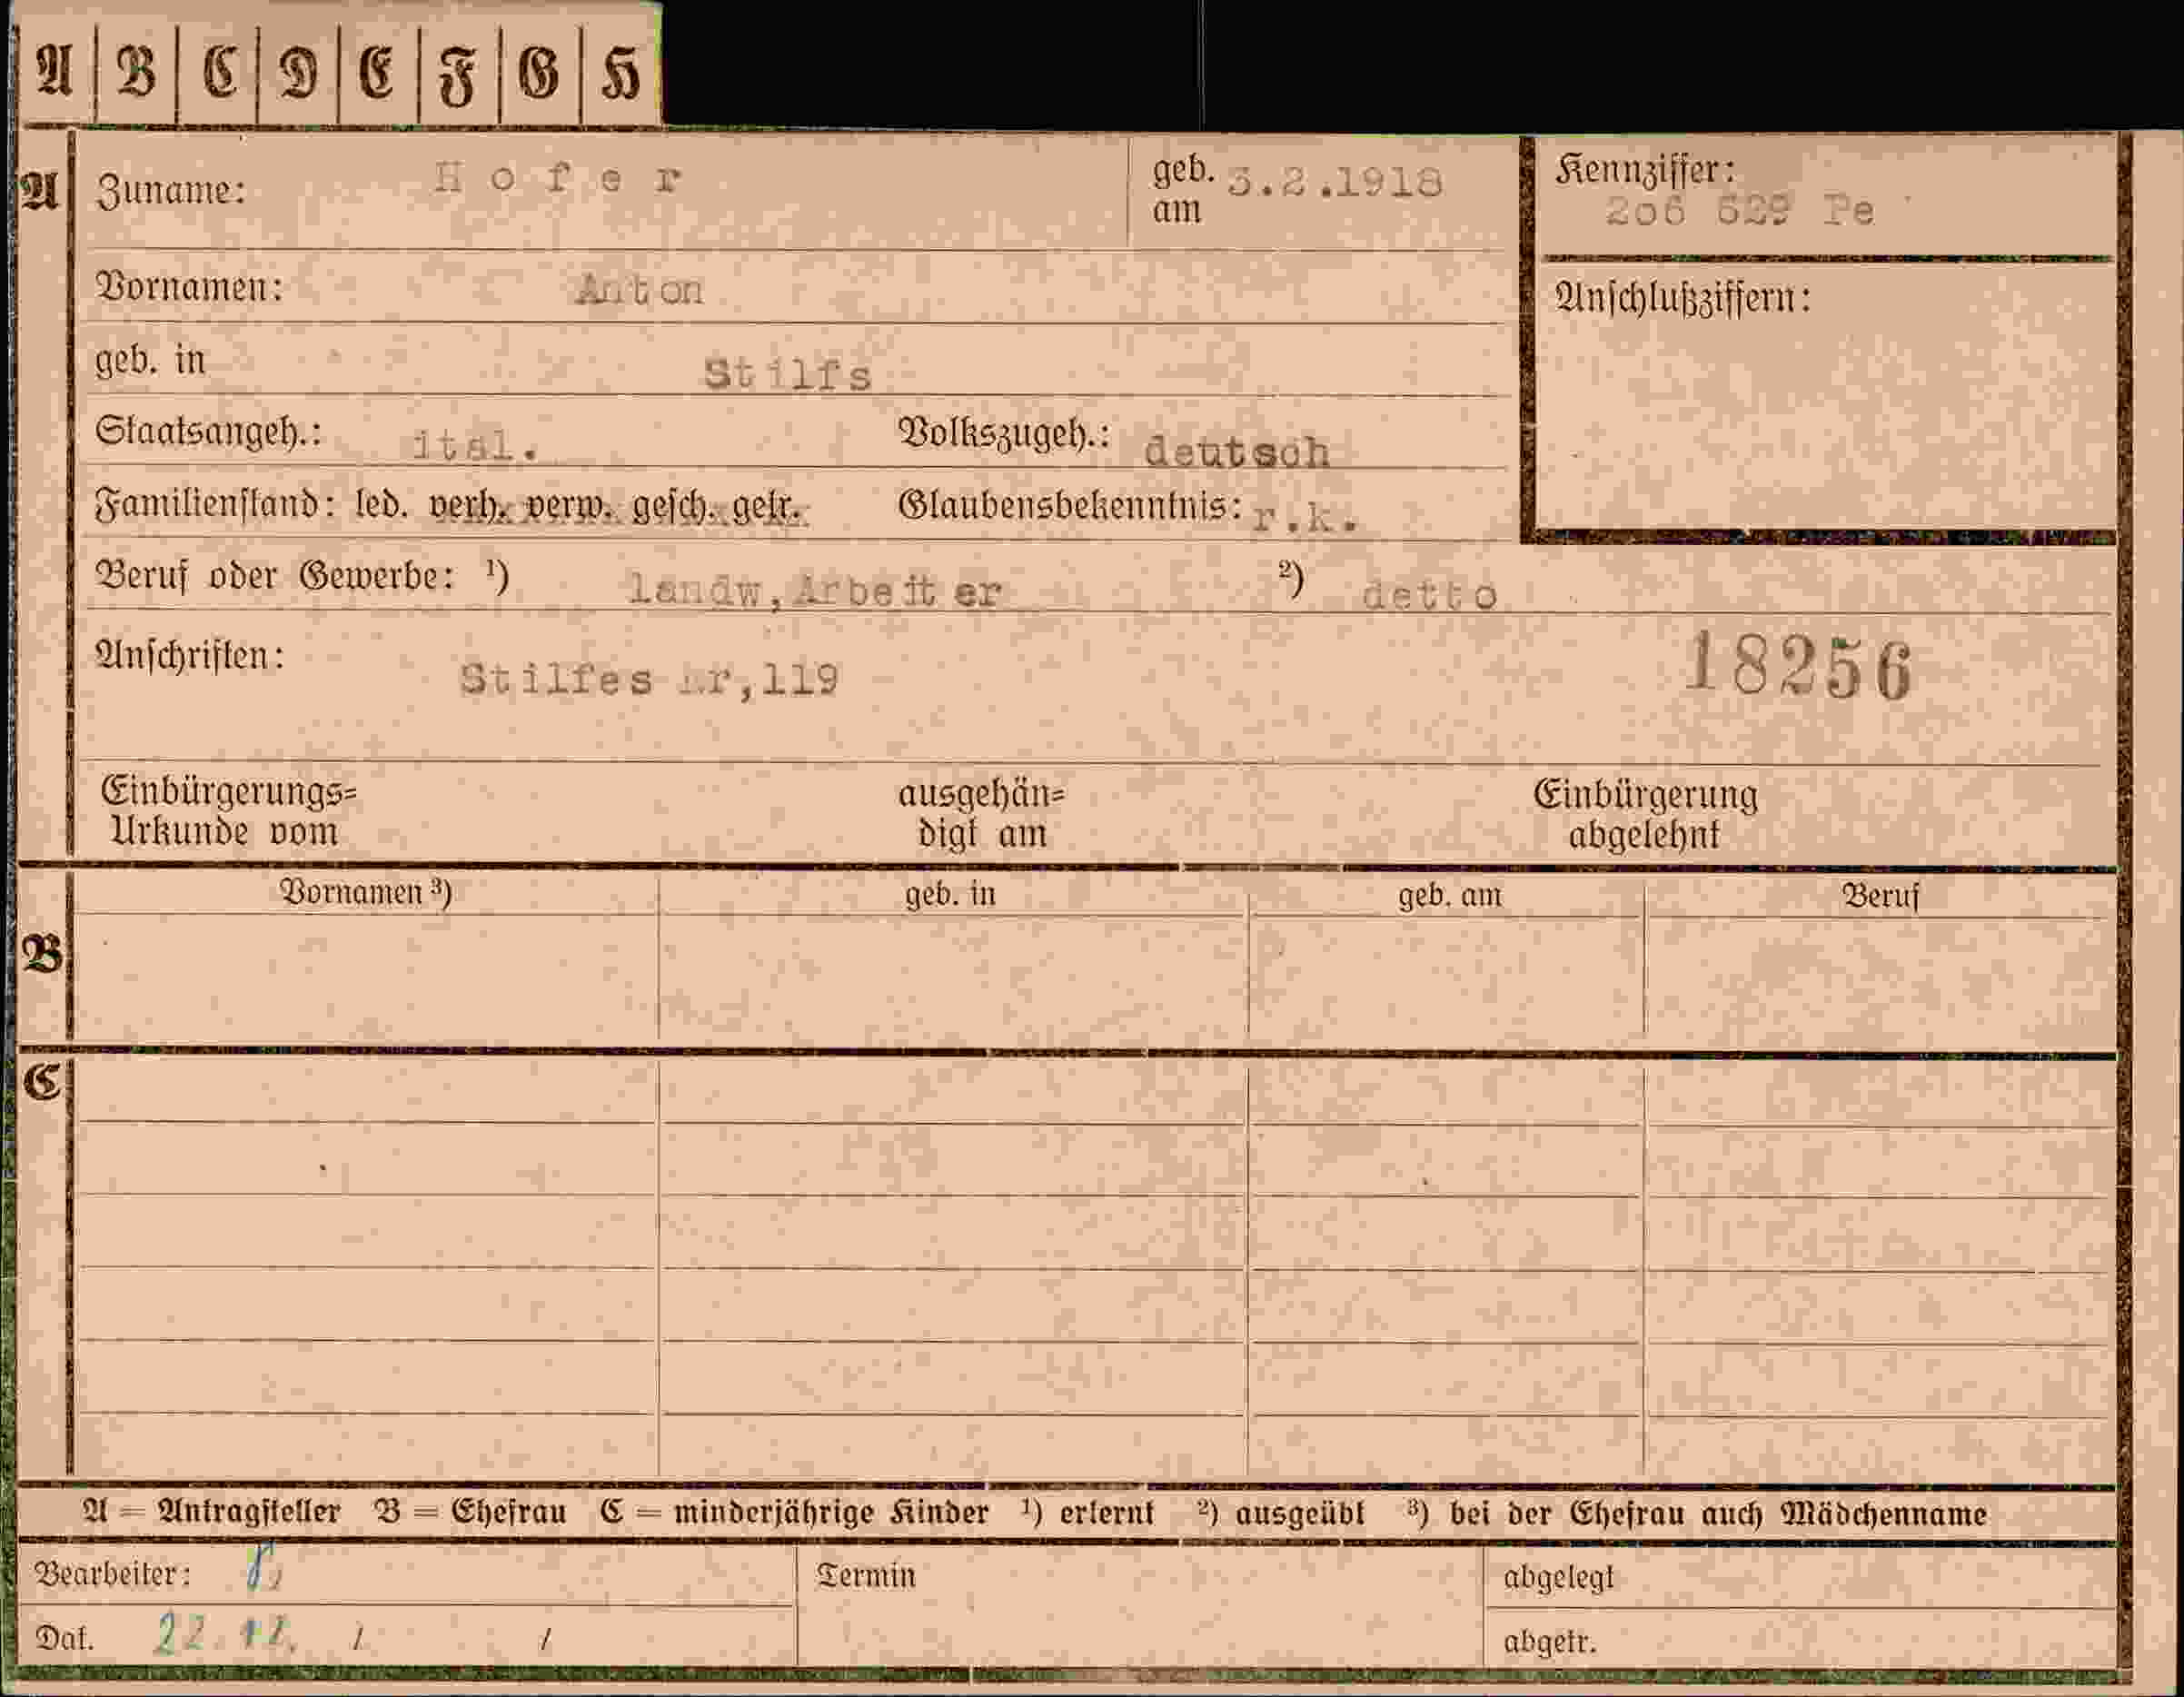 A B C D E F G H
A Zuname: Hofer geb. am 3.2.1918 Kennziffer:
206 629 Pe
Vornamen: Anton Anschlußziffern:
geb. in Stilfs
Staatsangeh.: ital. Volkszugeh.: deutsch
Familienstand: led. verh. verw. gesch. getr. Glaubensbekenntnis: r.k.
Beruf oder Gewerbe: ¹) landw,Arbeiter ²) detto
Anschriften: Stilfes Nr,119 18256
Einbürgerungs= ausgehän= Einbürgerung
Urkunde vom digt am abgelehnt
Vornamen ³) geb. in geb. am Beruf
B
C
A = Antragsteller B = Ehefrau C = minderjährige Kinder ¹) erlernt ²) ausgeübt ³) bei der Ehefrau auch Mädchenname
Bearbeiter: Termin abgelegt
Dat. 22.12. / / abgetr.